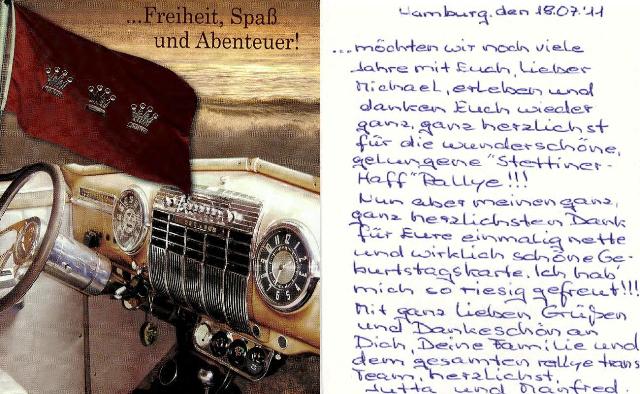 ...Freiheit, Spaß
und Abenteuer!
Hamburg, den 18.07.'11
...möchten wir noch viele
Jahre mit Euch, lieber
Michael, erleben und
danken Euch wieder
ganz, ganz herzlichst
für die wunderschöne,
gelungene "Stettiner-
Haff" Rallye!!!
Nun aber meinen ganz,
ganz herzlichsten Dank
für Eure einmalig nette
und wirklich schöne Ge-
burtstagskarte. Ich hab'
mich so riesig gefreut!!!
Mit ganz lieben Grüßen
und Dankeschön an
Dich, Deine Familie und
dem gesamten rallye trans
Team, herzlichst,
Jutta und Manfred.